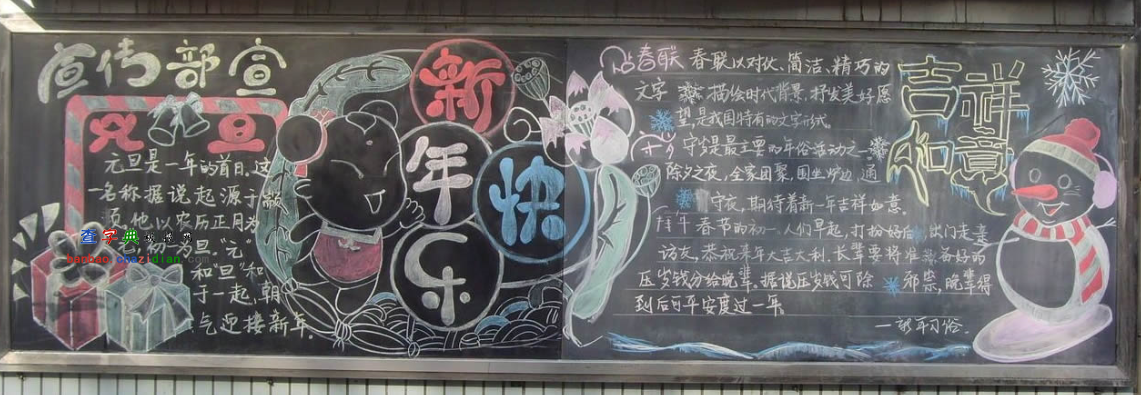 宣传部宣
元旦
元旦是一年的首日.这
一名称据说起源于颛
顼,他以农历正月为
和"旦"和
于一起,朝
气迎接新年.
查字典
chazidian.com
新年快乐
春联 春联以对仗、简洁、精巧的
文字 描绘时代背景,抒发美好愿
望,是我国特有的文字形式.
守岁是最主要的年俗活动之一
除夕之夜,全家团聚,围坐炉边,通
守夜,期待着新一年吉祥如意.
拜年 春节的初一,人们早起,打扮好后 出门走亲
访友,恭祝来年大吉大利.长辈要将准备好的
压岁钱分给晚辈.据说压岁钱可除 邪祟,晚辈得
到后可平安度过一年.
—新年习俗.
吉祥
如意